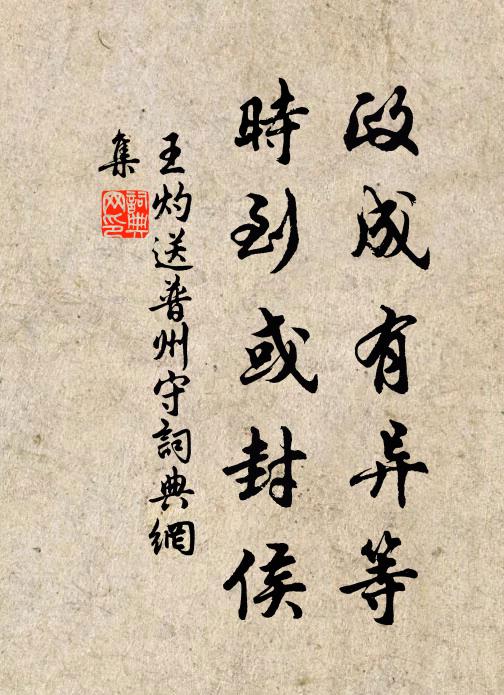 政成有异等
時到或封侯
王灼送普州守詞典網
集
詞典
网印